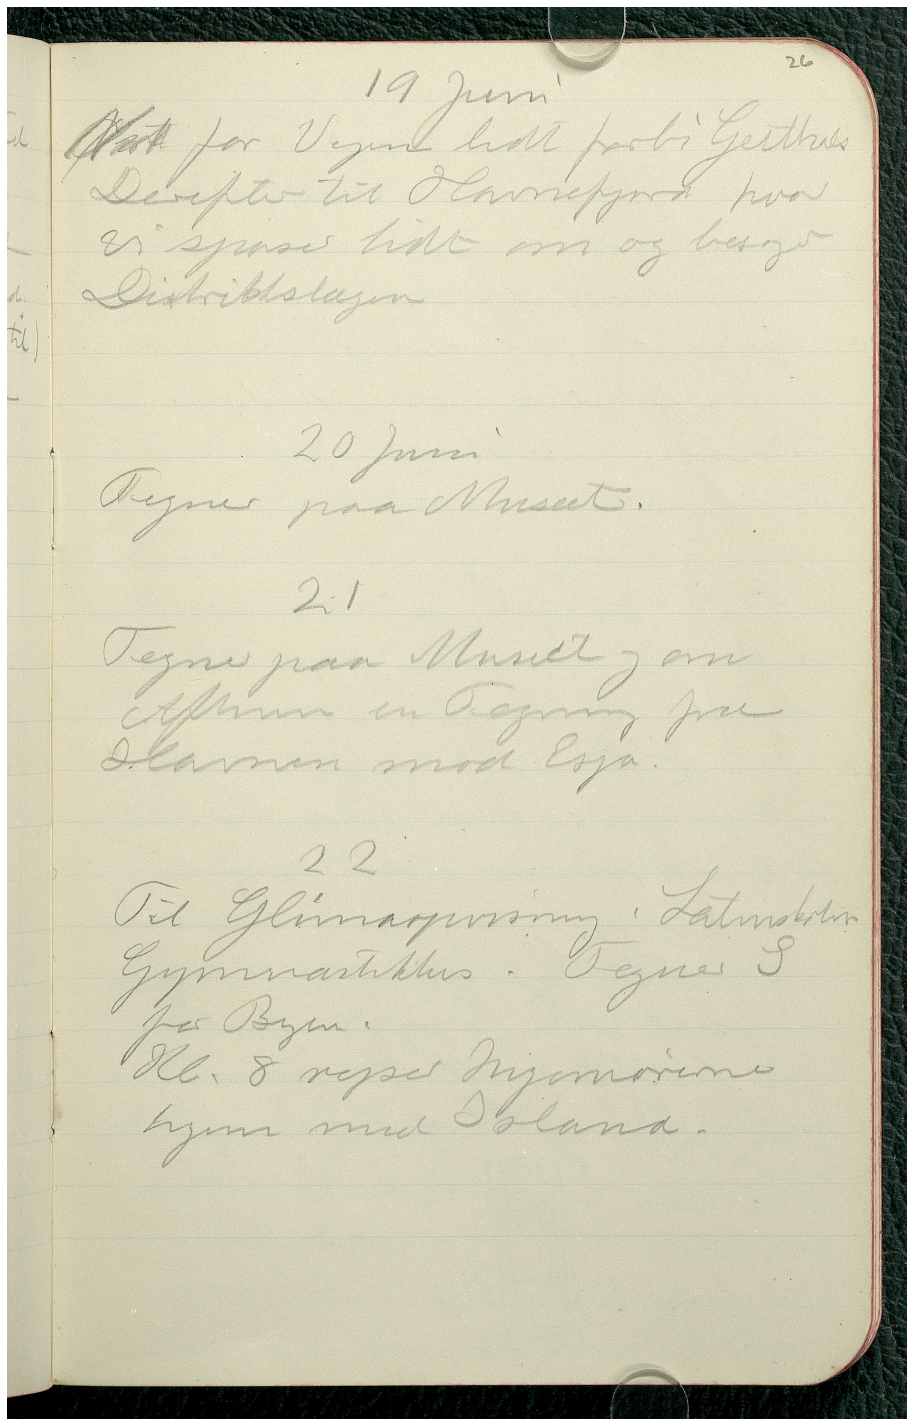 26
19 Juni
for Vejen lidt forbi
Derefter til Havnefjord hvor
vi spaser lidt om og besøger
Distriktslægen
20 Juni
Tegner paa Museet.
21
Tegner paa Museet og om
Aftenen en Tegning fra
Havnen mod Esja.
22
Til Glimaopvisning i Latinskolen
Gymnastikhus. Tegner S
for Byen.
Kl. 8 rejser
hjem med Island.